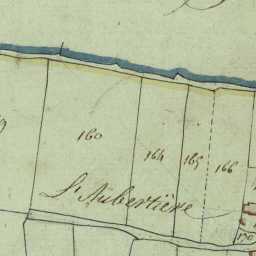 160
164
165
166
L'Aubertière
170